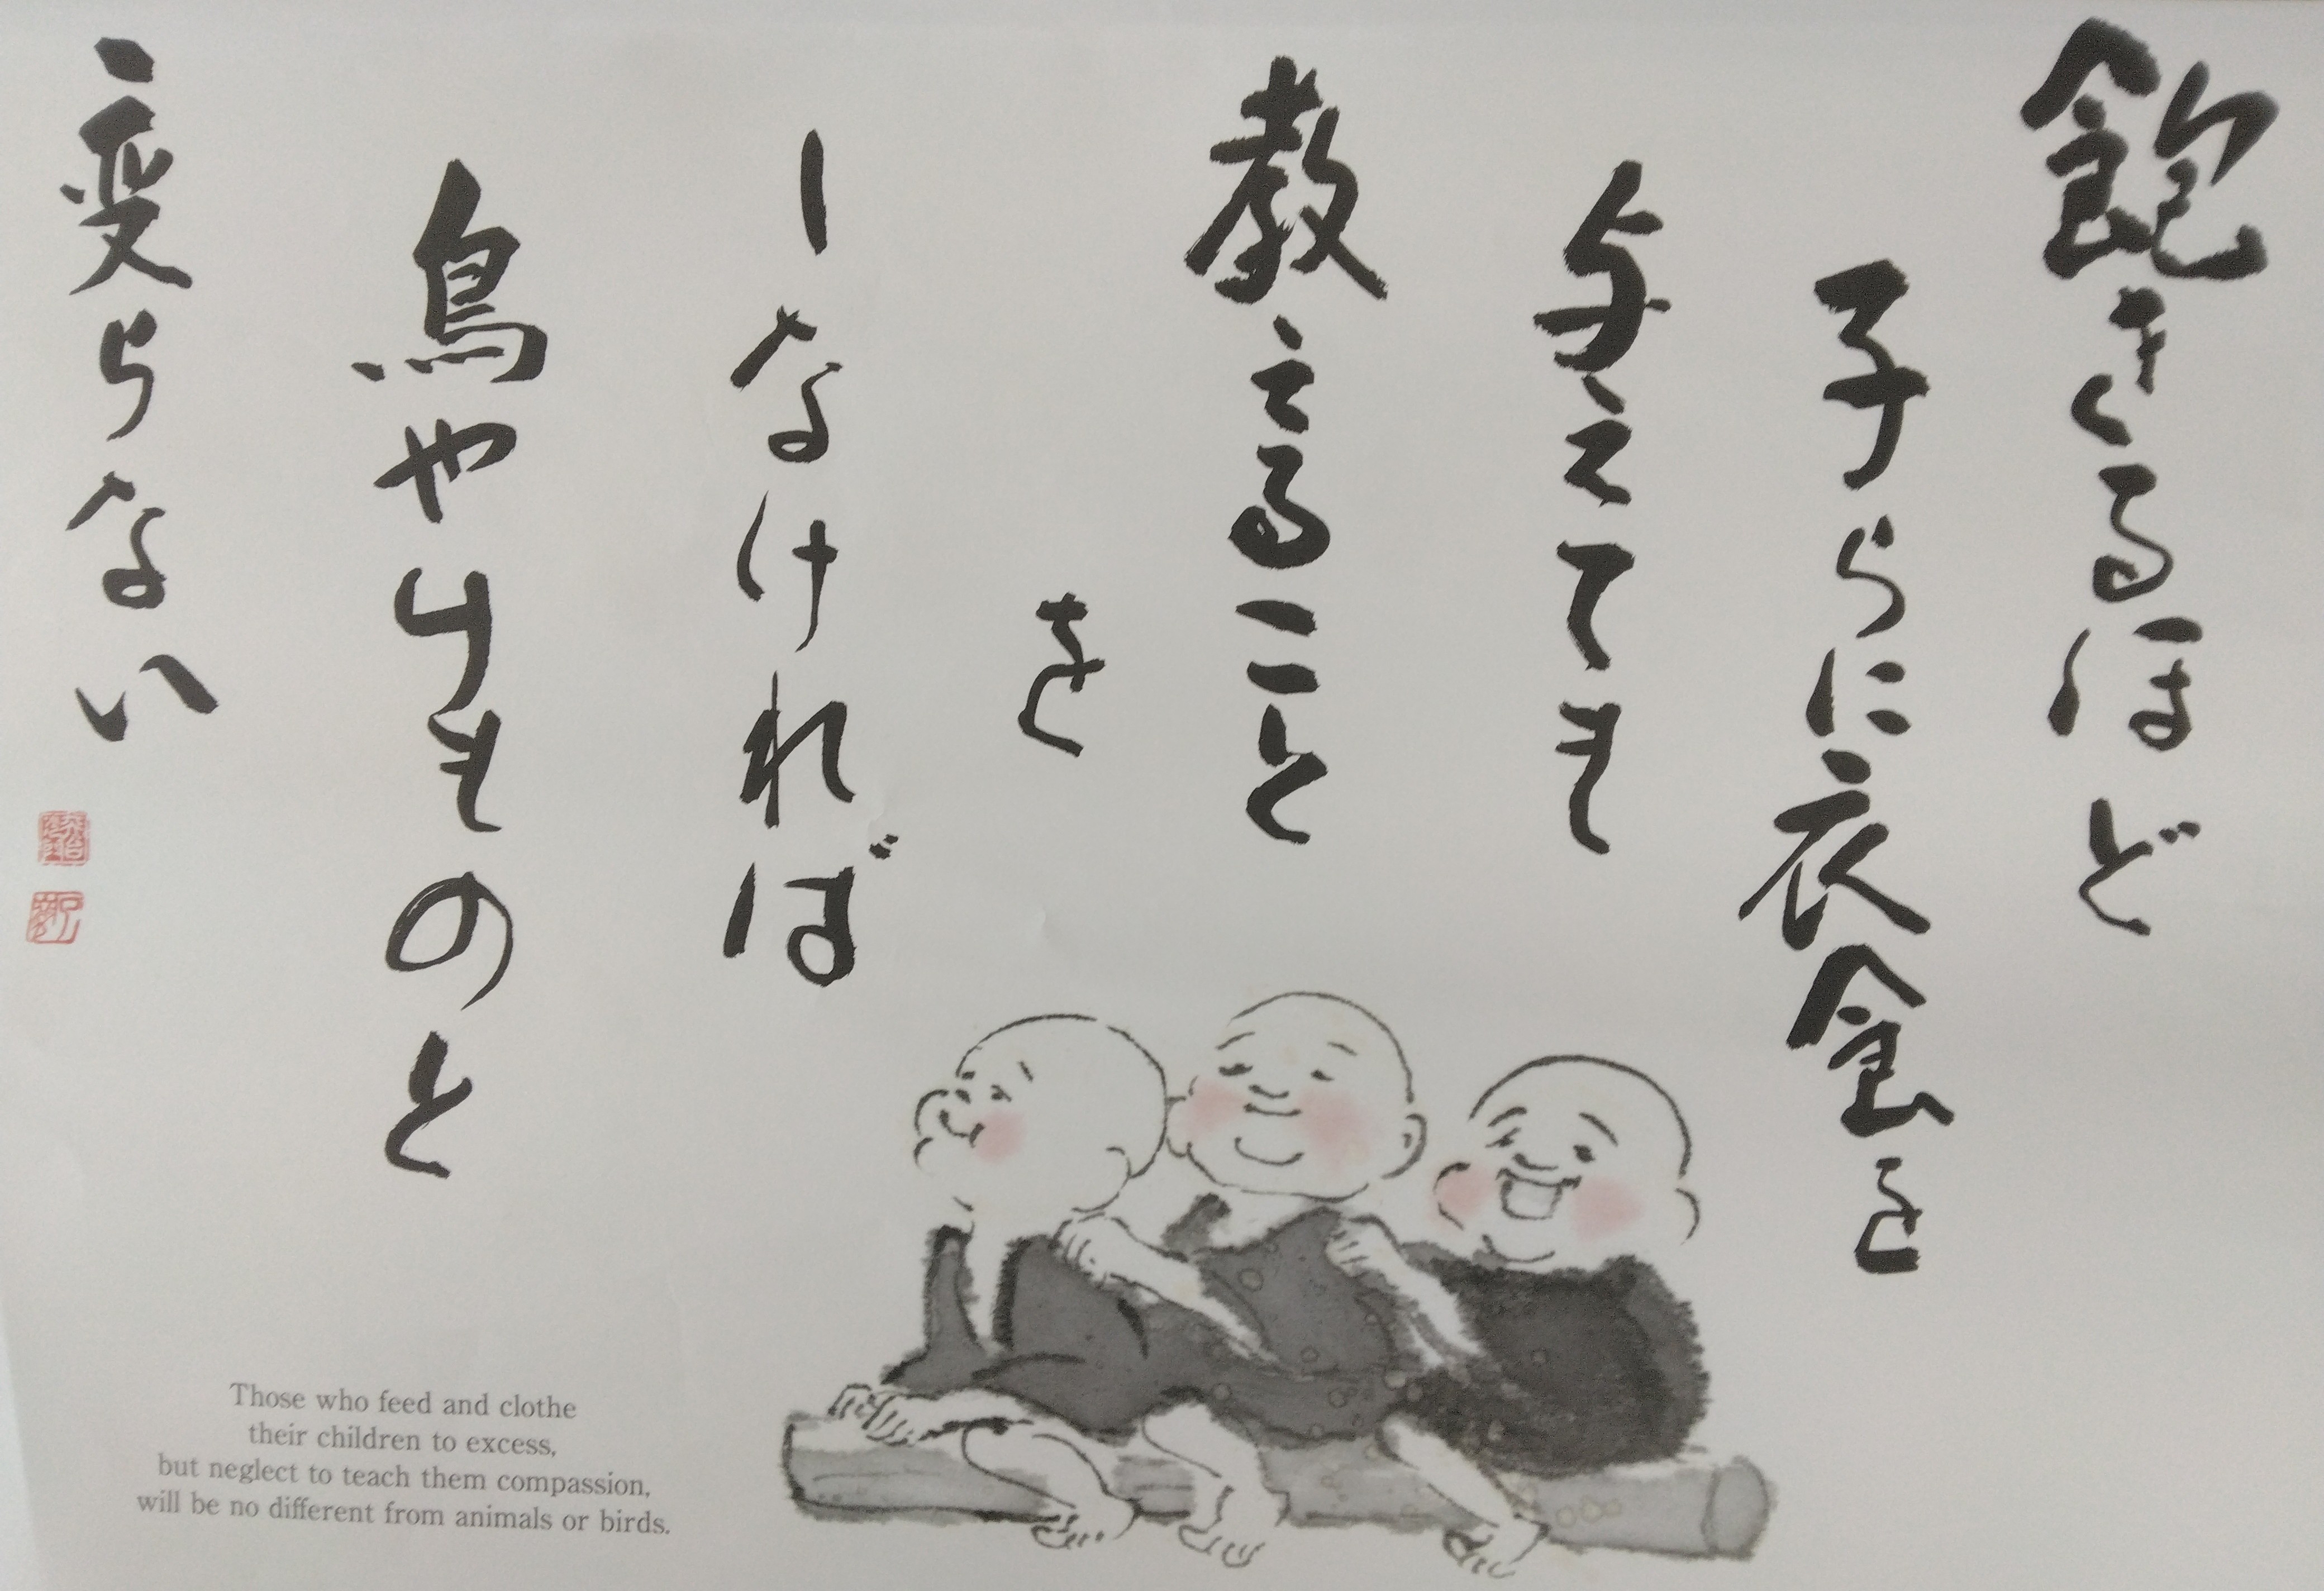 飽きるほど
子らに衣食を
与えても
教えること
を
しなければ
鳥やけものと
変らない
Those who feed and clothe
their children to excess,
but neglect to teach them compassion,
will be no different from animals or birds.